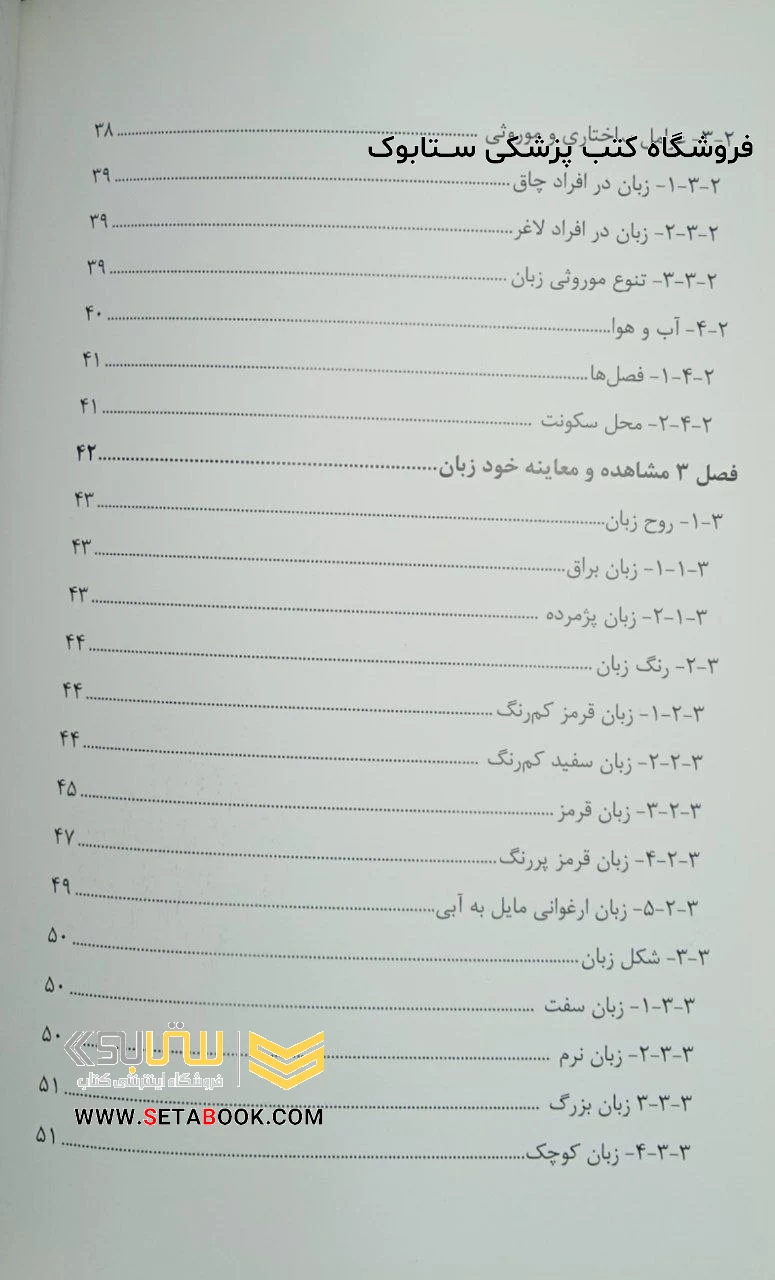 فروشگاه کتب پزشکی ستابوک
۲-۳- ساختاری و موروثی ........ ۳۸
۲-۳-۱- زبان در افراد چاق ........ ۳۹
۲-۳-۲- زبان در افراد لاغر ........ ۳۹
۲-۳-۳- تنوع موروثی زبان ........ ۳۹
۲-۴- آب و هوا ........ ۴۰
۲-۴-۱- فصل‌ها ........ ۴۱
۲-۴-۲- محل سکونت ........ ۴۱
فصل ۳ مشاهده و معاینه خود زبان ........ ۴۲
۳-۱- روح زبان ........ ۴۳
۳-۱-۱- زبان براق ........ ۴۳
۳-۱-۲- زبان پژمرده ........ ۴۳
۳-۲- رنگ زبان ........ ۴۴
۳-۲-۱- زبان قرمز کم‌رنگ ........ ۴۴
۳-۲-۲- زبان سفید کم‌رنگ ........ ۴۴
۳-۲-۳- زبان قرمز ........ ۴۵
۳-۲-۴- زبان قرمز پررنگ ........ ۴۷
۳-۲-۵- زبان ارغوانی مایل به آبی ........ ۴۹
۳-۳- شکل زبان ........ ۵۰
۳-۳-۱- زبان سفت ........ ۵۰
۳-۳-۲- زبان نرم ........ ۵۰
۳-۳-۳ زبان بزرگ ........ ۵۱
۳-۳-۴- زبان کوچک ........ ۵۱
فروشگاه اینترنتی کتاب
WWW.SETABOOK.COM